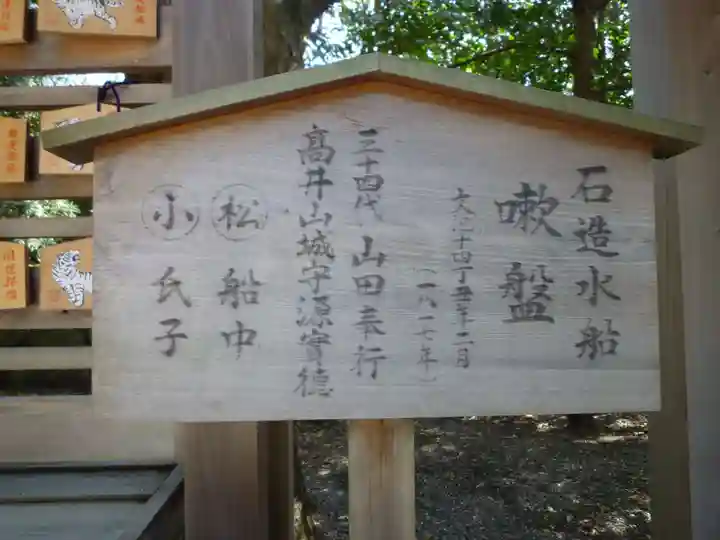 石造水船
嗽盤
文化十四丁丑年二月
(一八一七年)
三十四代 山田奉行
高井山城守源實德
松 船中
小 氏子